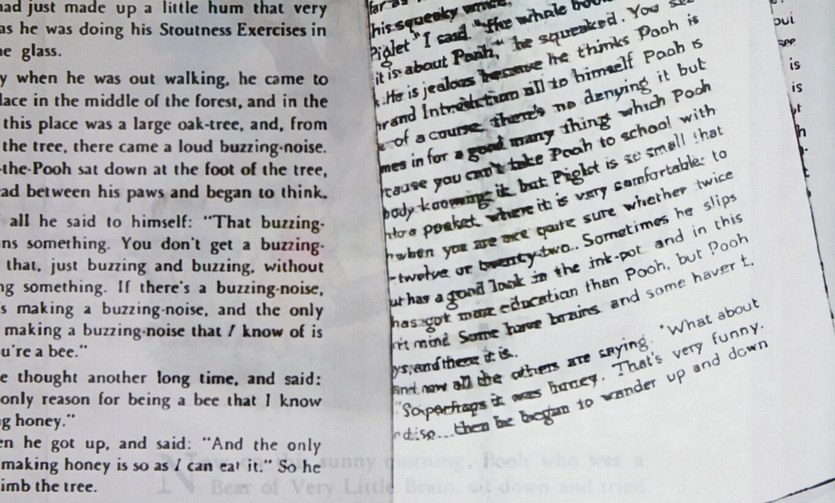 ad just made up a little hum that very
as he was doing his Stoutness Exercises in
e glass.
y when he was out walking, he came to
lace in the middle of the forest, and in the
this place was a large oak-tree, and, from
the tree, there came a loud buzzing-noise.
-the-Pooh sat down at the foot of the tree,
ad between his paws and began to think.
all he said to himself: "That buzzing-
ns something. You don't get a buzzing-
that, just buzzing and buzzing, without
ng something. If there's a buzzing-noise,
s making a buzzing-noise, and the only
making a buzzing-noise that I know of is
u're a bee."
e thought another long time, and said:
only reason for being a bee that I know
g honey."
en he got up, and said: "And the only
making honey is so as I can eat it." So he
imb the tree.
far as
his squeaky
Piglet" I said "the whole
it is about Pooh," he squeaked. You
He is jealous because he thinks Pooh is
rand all to himself Pooh is
of a course there's no denying it but
mes in for a good many thing which Pooh
cause you can't take Pooh to school with
body knowing it but Piglet is so small that
into a pocket, where it is very comfortable to
when you are not quite sure whether twice
twelve or twenty-two. Sometimes he slips
ut has a good look in the ink-pot and in this
has got more education than Pooh, but Pooh
n't mind Some have brains and some haven't,
ys, and there it is.
and now all the others are saying, "What about
"So perhaps it was funny. That's very funny.
d so... then he began to wander up and down
oui
see
is
is
sunny morning, Pooh who was a
Bear of Very Little Brain, sat down and tried